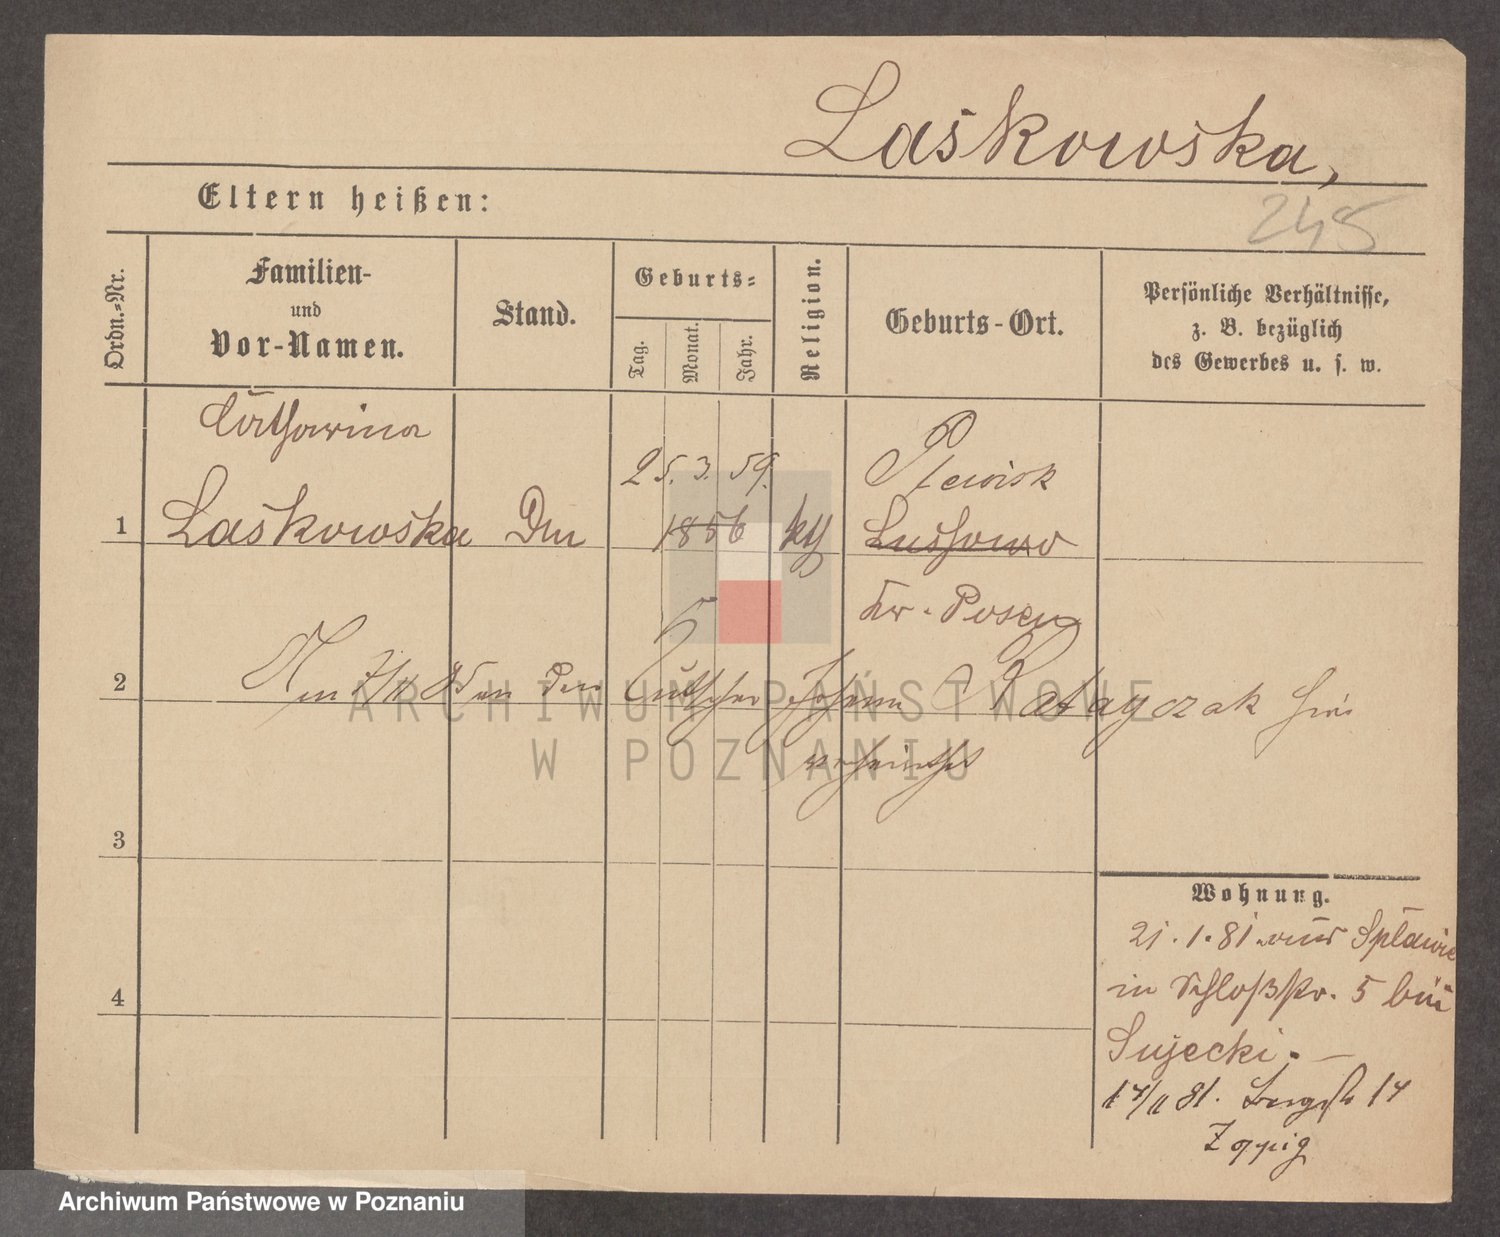 Laskowska,
Eltern heißen:
245
Ordn.-Nr.
Familien-
und
Vor-Namen.
Stand.
Geburts-
Tag.
Monat.
Jahr.
Religion.
Geburts-Ort.
Persönliche Verhältnisse,
z. B. bezüglich
des Gewerbes u. s. w.
Catharina
25. 3. 59.
Plewisk
1 Laskowska 1856 kth Lussowo
Kr. Posen
2
Johann Ratayczak hier
verheirathet
3
Wohnung.
21.1.81. aus Splawie
in Schloßstr. 5 bei
4
Sujecki. —
17/11 81. Bergstr 14
ARCHIWUM PAŃSTWOWE
W POZNANIU
Archiwum Państwowe w Poznaniu